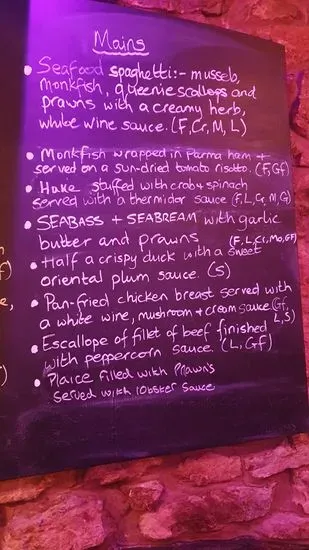 Mains
• Seafood spaghetti:- mussels,
monkfish, queenie scallops and
prawns with a creamy herb,
white wine sauce. (F, Cr, M, L)
• Monkfish wrapped in Parma ham +
served on a sun-dried tomato risotto. (F, Gf)
• Hake stuffed with crab + spinach
served with a thermidor sauce (F, L, Cr, M, G)
• SEABASS + SEABREAM with garlic
butter and prawns (F, L, Cr, Mo, GF)
• Half a crispy duck with a sweet
oriental plum sauce. (S)
• Pan-fried chicken breast served with
a white wine, mushroom + cream sauce (Gf,
L, S)
• Escallope of fillet of beef finished
with peppercorn sauce. (L, Gf)
• Plaice filled with Prawns
served with lobster sauce